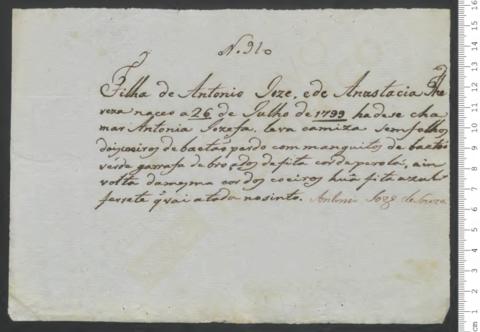 N. 310
Filha de Antonio Joze, e de Anastacia The
reza naceo a 26 de Julho de 1799 hadese cha
mar Antonia Jozefa, leva camiza sem folhos
dois coeiros de baeta pardo com manguitos de baeta
verde garrafa de fita cor de perola, a in
volta da mesma cor dos coeiros huã fita azul
ferrete q̃ vai atada no sinto. Antonio Joze de Souza